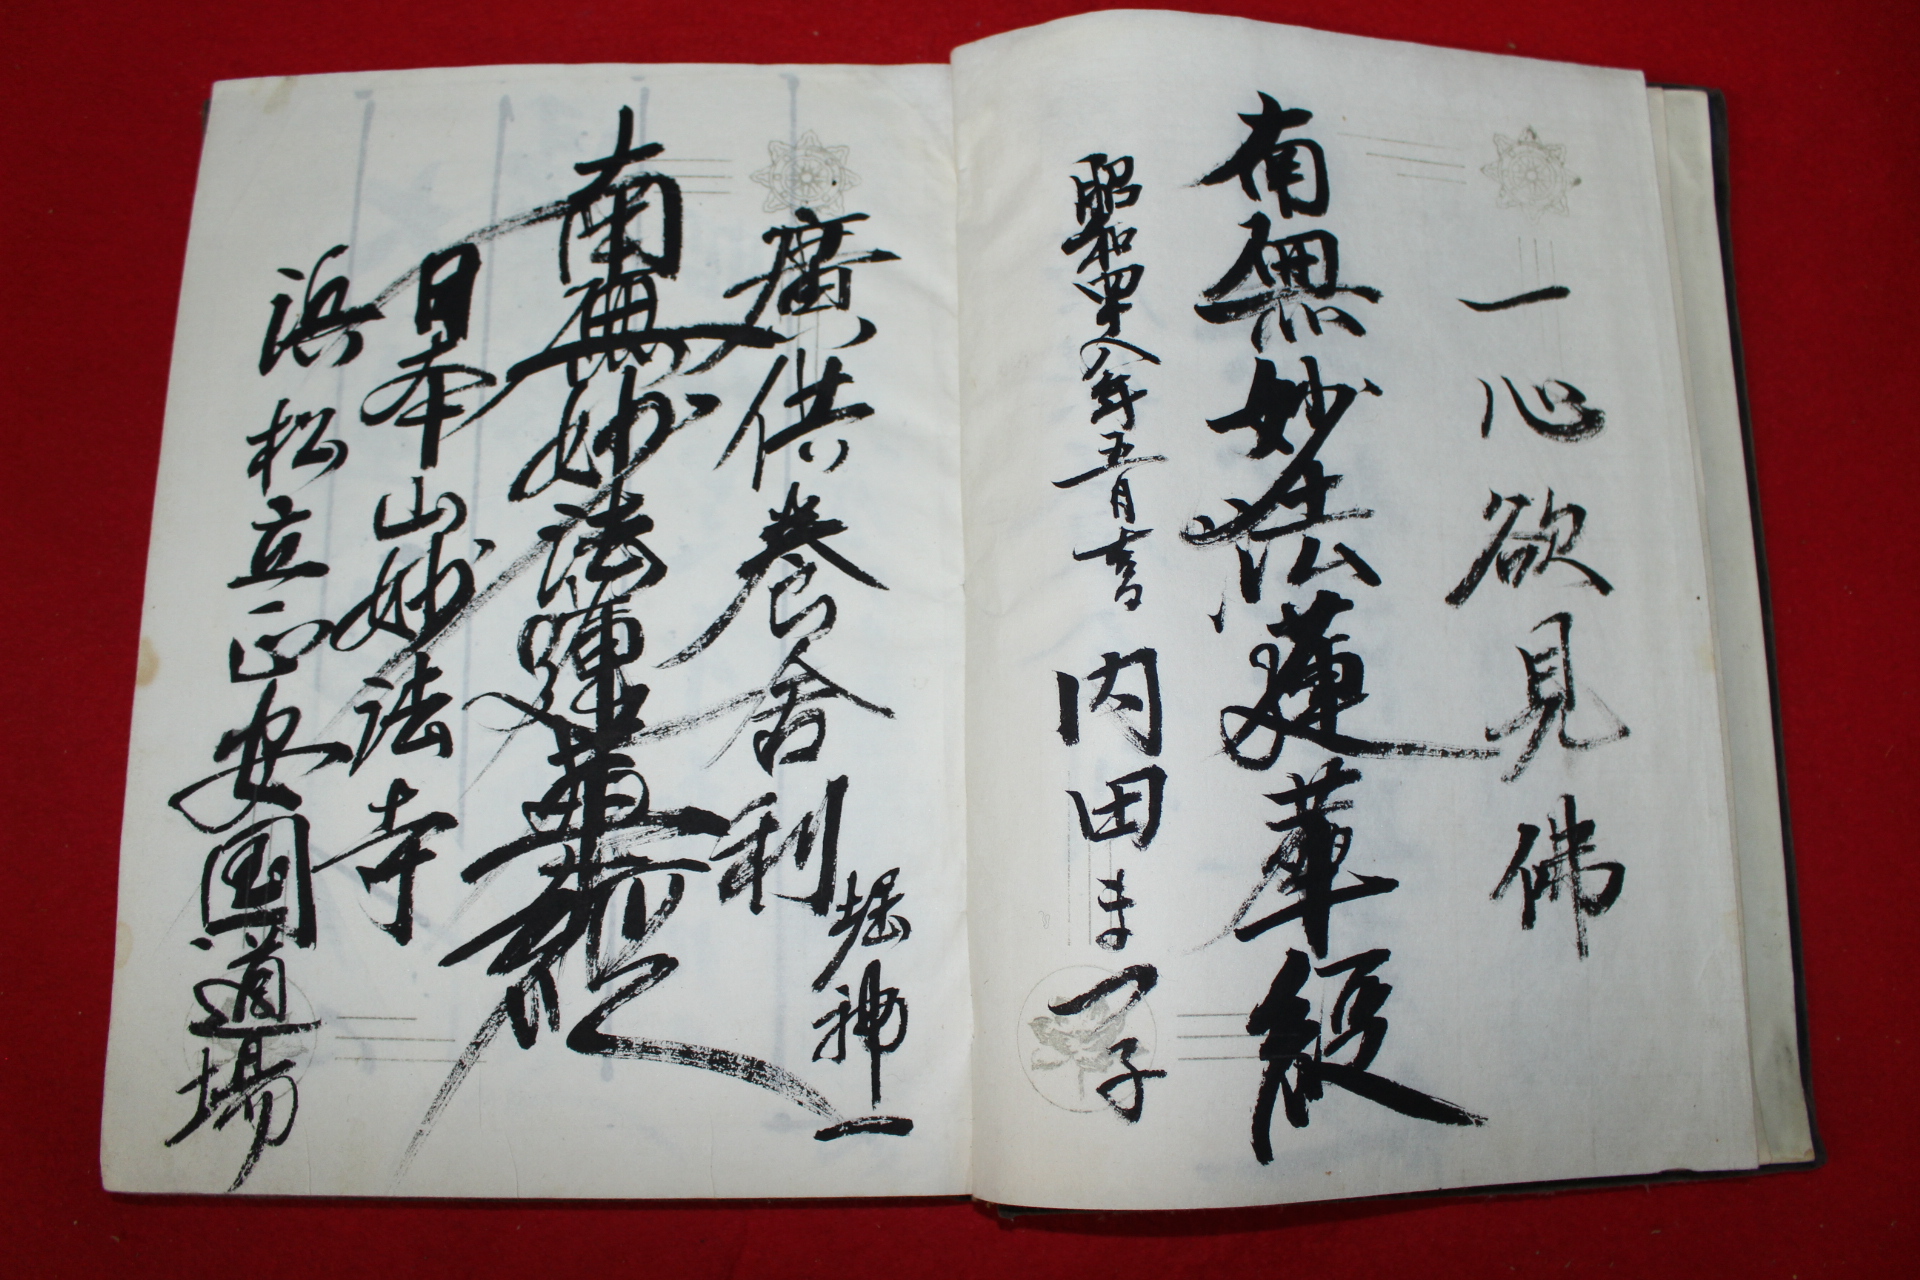 一心欲見佛
南無妙法蓮華経
昭和四十八年五月吉日
内田まつ子
廣供養舎利
堀神一
南無妙法蓮華経
日本山妙法寺
浜松立正安国道場